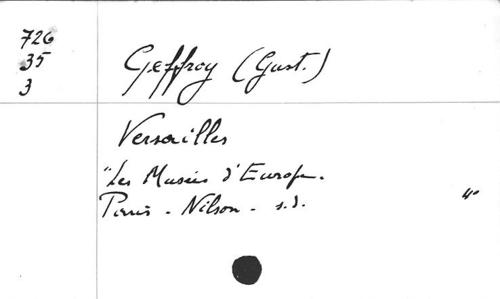 726
35
3
Geffroy (Gust.)
Versailles
"Les Musées d'Europe.
Paris - Nilson - s.d.
4°